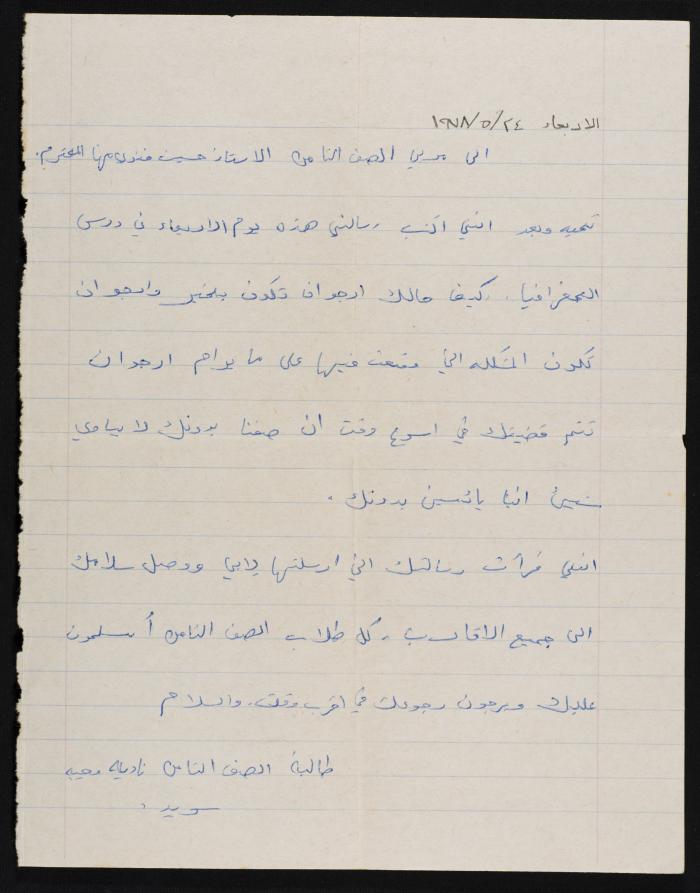 الاربعاء ٢٤/٥/١٩٧٨
الى مربي الصف الثامن الاستاذ حسين مهنا المحترم.
تحيه وبعد انني اكتب رسالتي هذه يوم الاربعاء في درس
الجغرافيا. كيف حالك ارجو ان تكون بخير وارجو ان
تكون المشكله التي وقعت فيها على ما يرام ارجو ان
تتم قضيتك في اسرع وقت ان صفنا بدونك لا يساوي
شيئ اننا يائسين بدونك.
انني قرأت رسالتك التي ارسلتها لابي ووصل سلامك
الى جميع الاقارب. كل طلاب الصف الثامن أ يسلمون
عليك ويرجون رجوعك في اقرب وقت. والسلام
طالبة الصف الثامن ناديه
سويد.